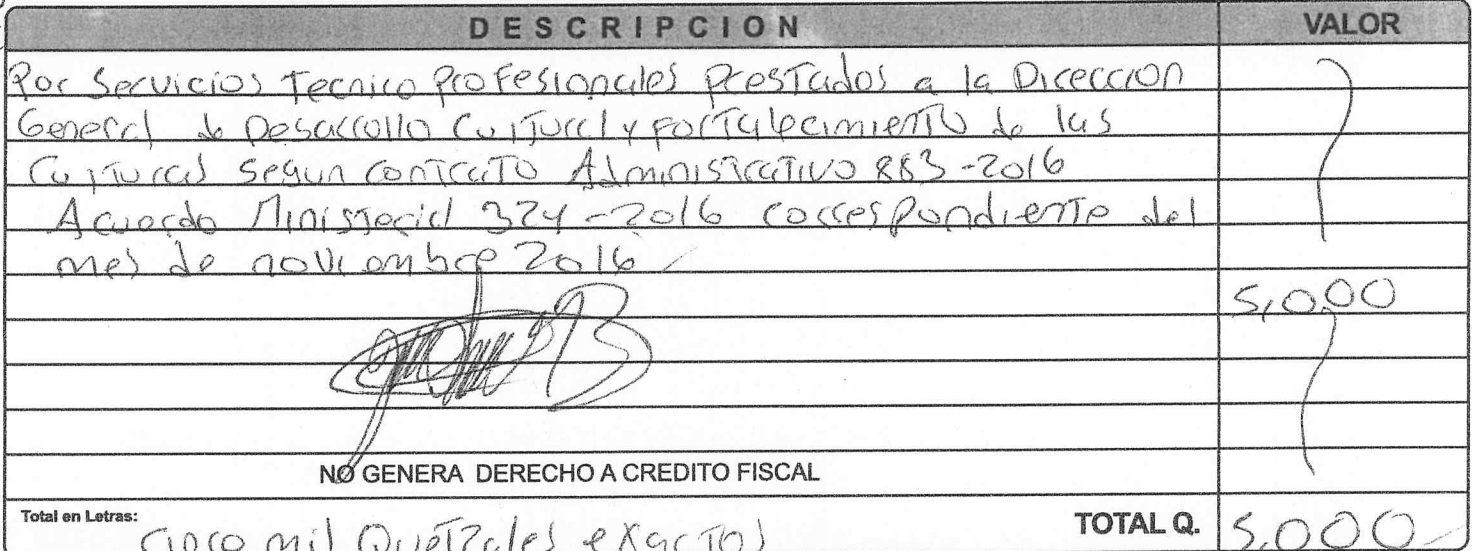 DESCRIPCION VALOR
Por Servicios Tecnico Profesionales Prestados a la Direccion
General de Desarrollo Cultural y Fortalecimiento de las
Culturas Segun contrato Administrativo 883-2016
Acuerdo Ministerial 324-2016 correspondiente del
mes de noviembre 2016
5,000
NO GENERA DERECHO A CREDITO FISCAL
Total en Letras: Cinco mil Quetzales exactos TOTAL Q. 5,000